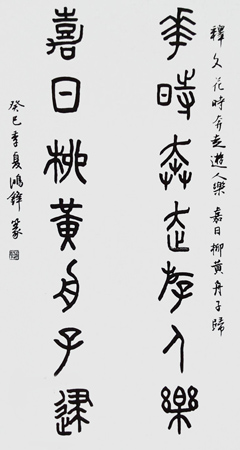 釋文花時奔走遊人樂 嘉日柳黃舟子歸
華時奔走游人樂
嘉日柳黃舟子歸
癸巳季夏鴻鋒篆